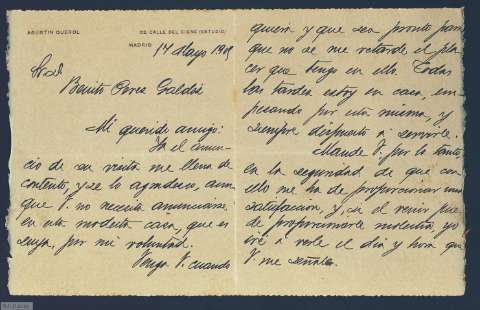 AGUSTIN QUEROL
52 CALLE DEL CISNE (ESTUDIO)
MADRID 14 Mayo 1901
Sr. D.
Benito Perez Galdós
Mi querido amigo:
Ya el anun-
cio de su visita me llena de
contento, y se lo agradezco, aun
que V. no necesita anunciarse
en esta modesta casa, que es
suya, por mi voluntad.
Venga V. cuando
quiera y que sea pronto para
que no se me retarde el pla
cer que tengo en ello. Todas
las tardes estoy en casa, em
pezando por esta misma, y
siempre dispuesto a servirle.
Mande V. por lo tanto,
en la seguridad de que con
ello me ha de proporcionar una
satisfacción, y, si el venir pue
de proporcionarle molestia, yo
iré a verle el día y hora que
V. me señale.